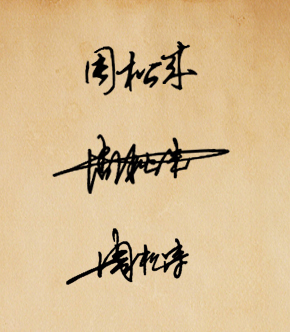 周松涛
周松涛
周松涛